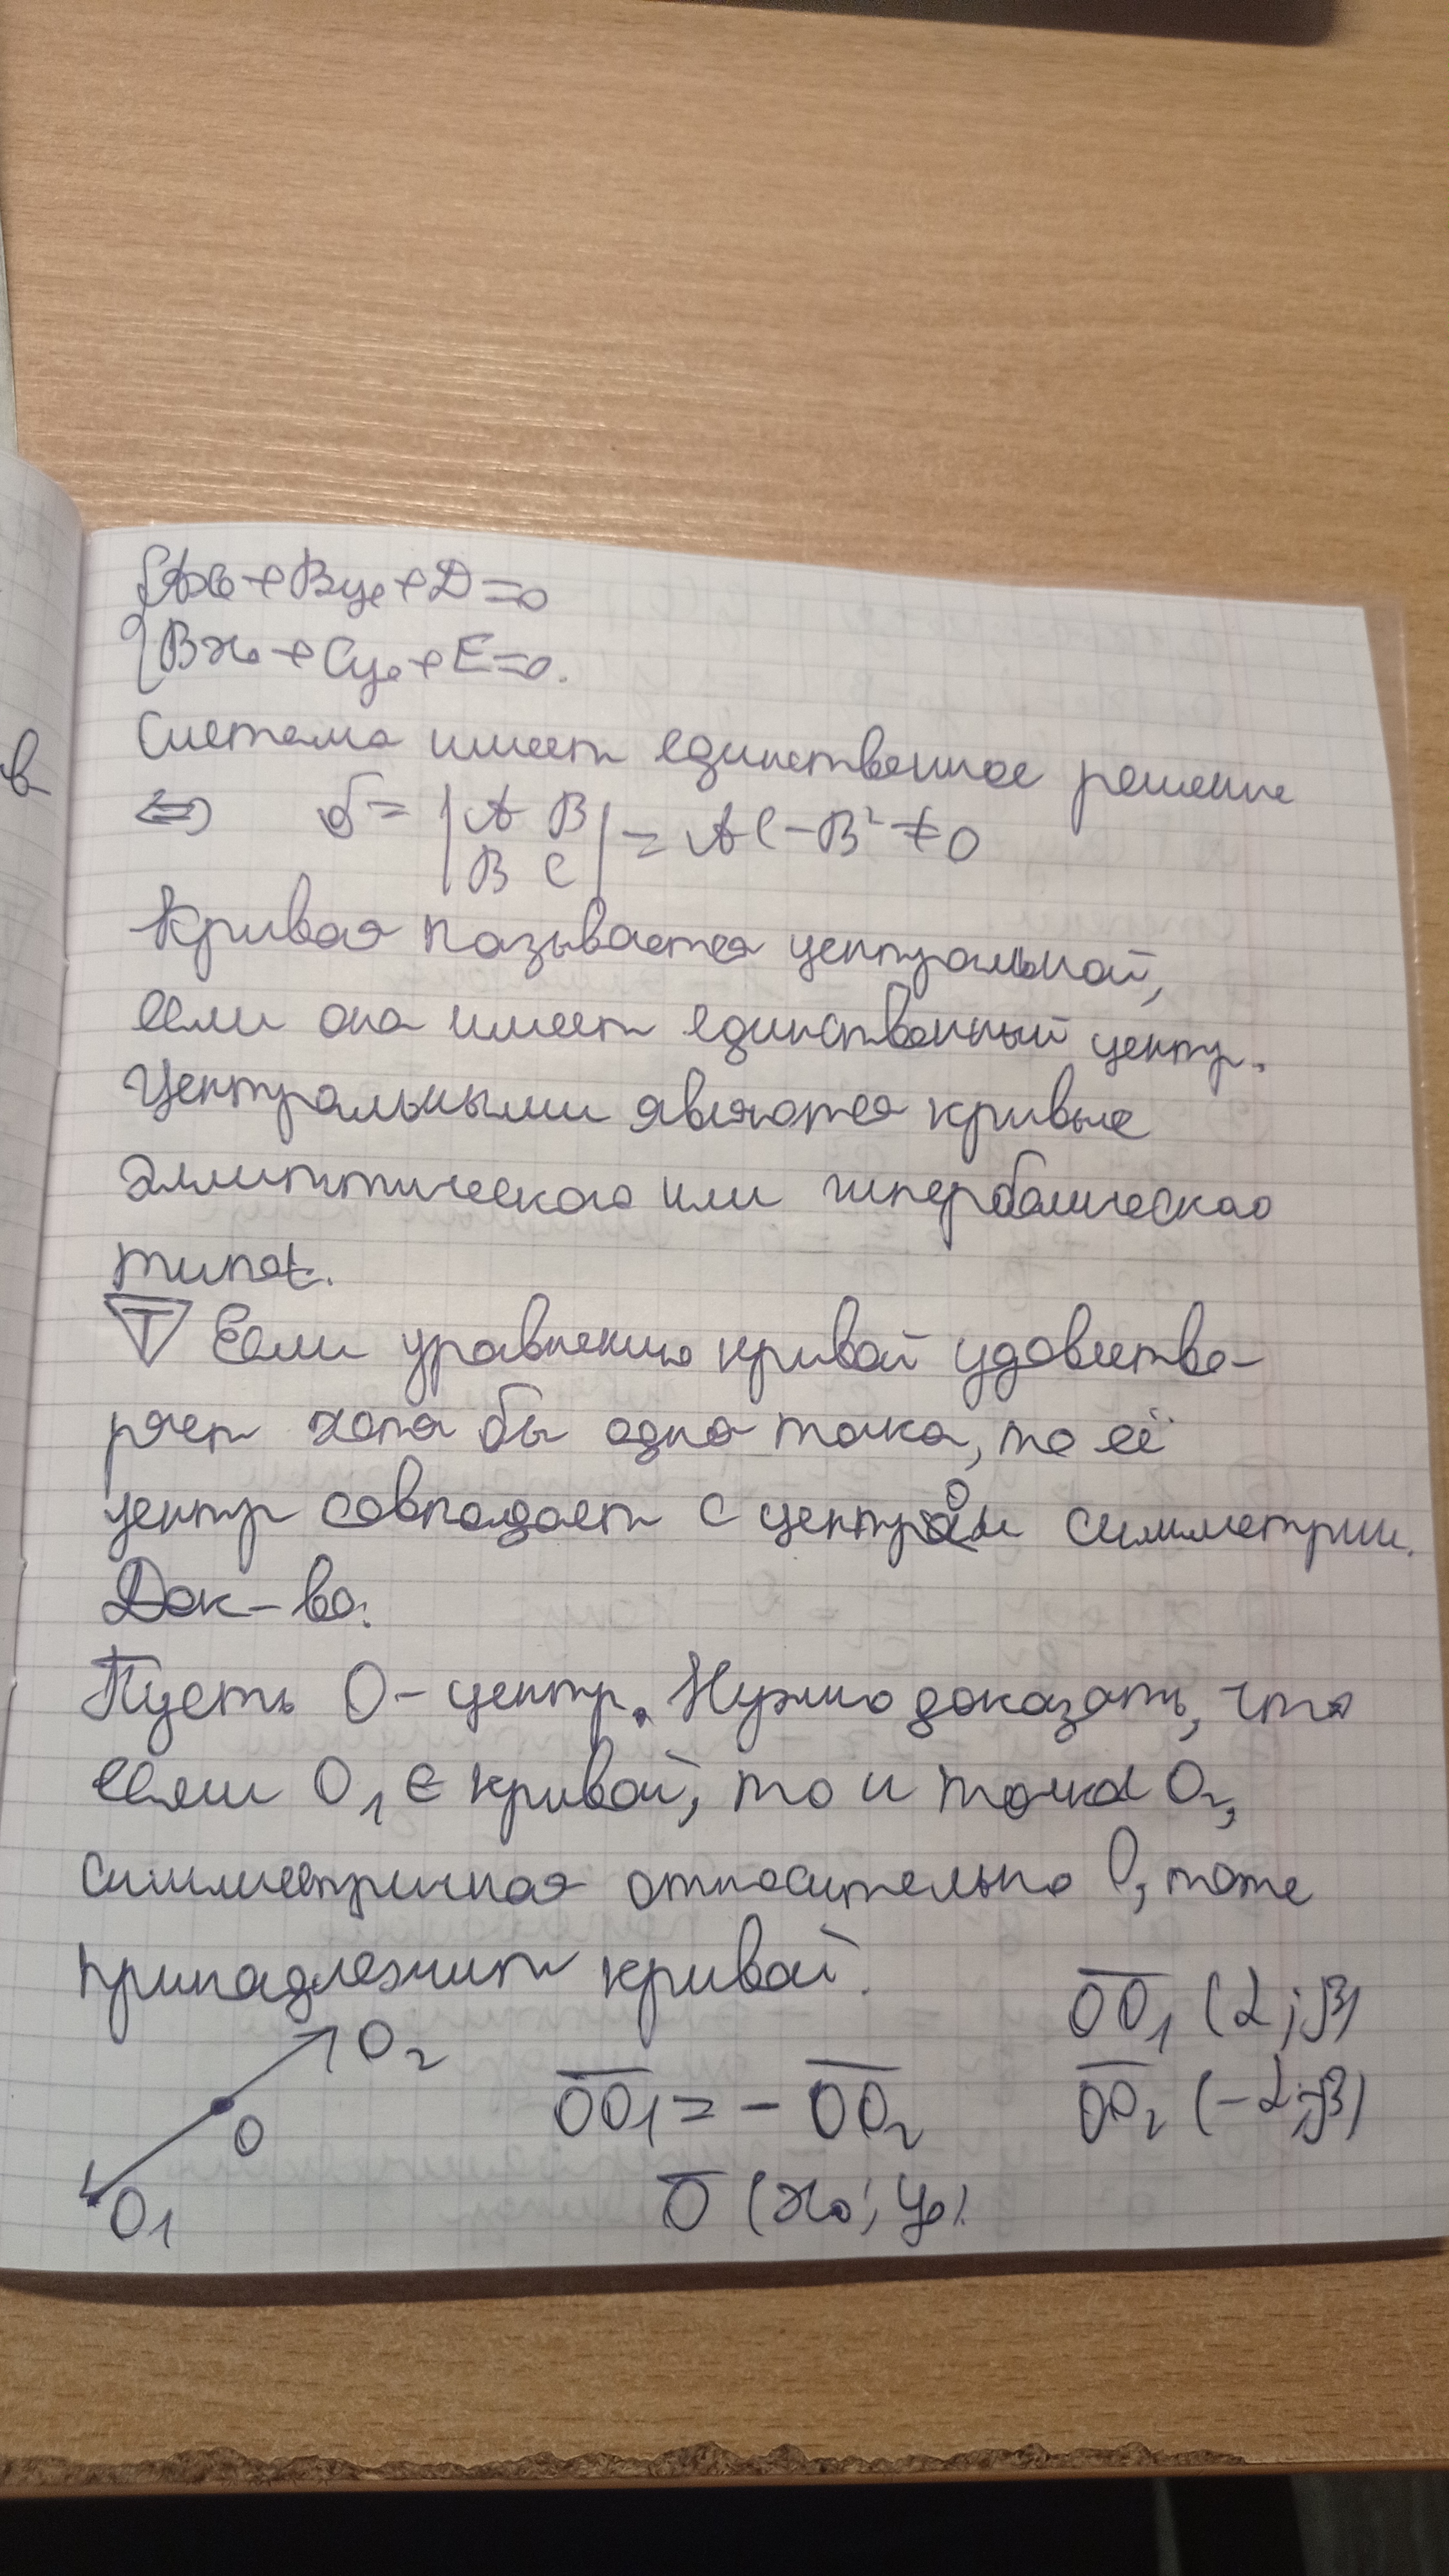 {Ax₀+By₀+D=0
{Bx₀+Cy₀+E=0.
Система имеет единственное решение
в
⇔ δ= |A B| = AC-B² ≠0
|B C|
Кривая называется центральной,
если она имеет единственный центр.
Центральными являются кривые
эллиптического или гиперболическао
типа.
T Если уравнению кривой удовлетво-
ряет хотя бы одна точка, то её
центр совпадает с центром симметрии.
Док-во:
Пусть O-центр. Нужно доказать, что
если O₁ ∈ кривой, то и точка O₂,
симметричная относительно O, тоже
принадлежит кривой.
OO₁ (α;β)
O₂
OO₁ = - OO₂ OO₂ (-α;-β)
O
O₁ O (x₀; y₀).